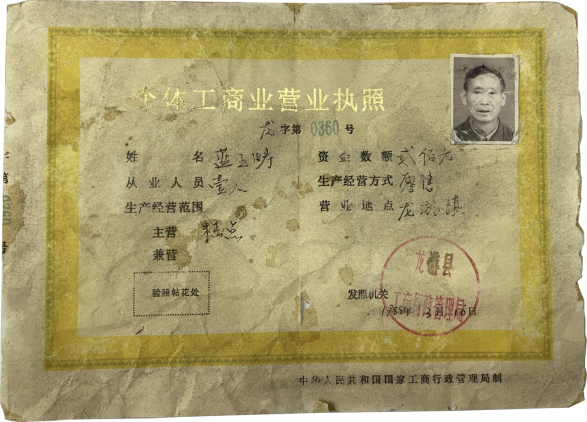 个体工商业营业执照
龙 字第 0360 号
姓名 蓝玉畴 资金数额 贰佰元
从业人员 壹人 生产经营方式 零售
生产经营范围 营业地点 龙游镇
主营 糕点
兼营
验照帖花处
发照机关
龙游县
工商行政管理局
1988年3月16日
中华人民共和国国家工商行政管理局制
第0360号